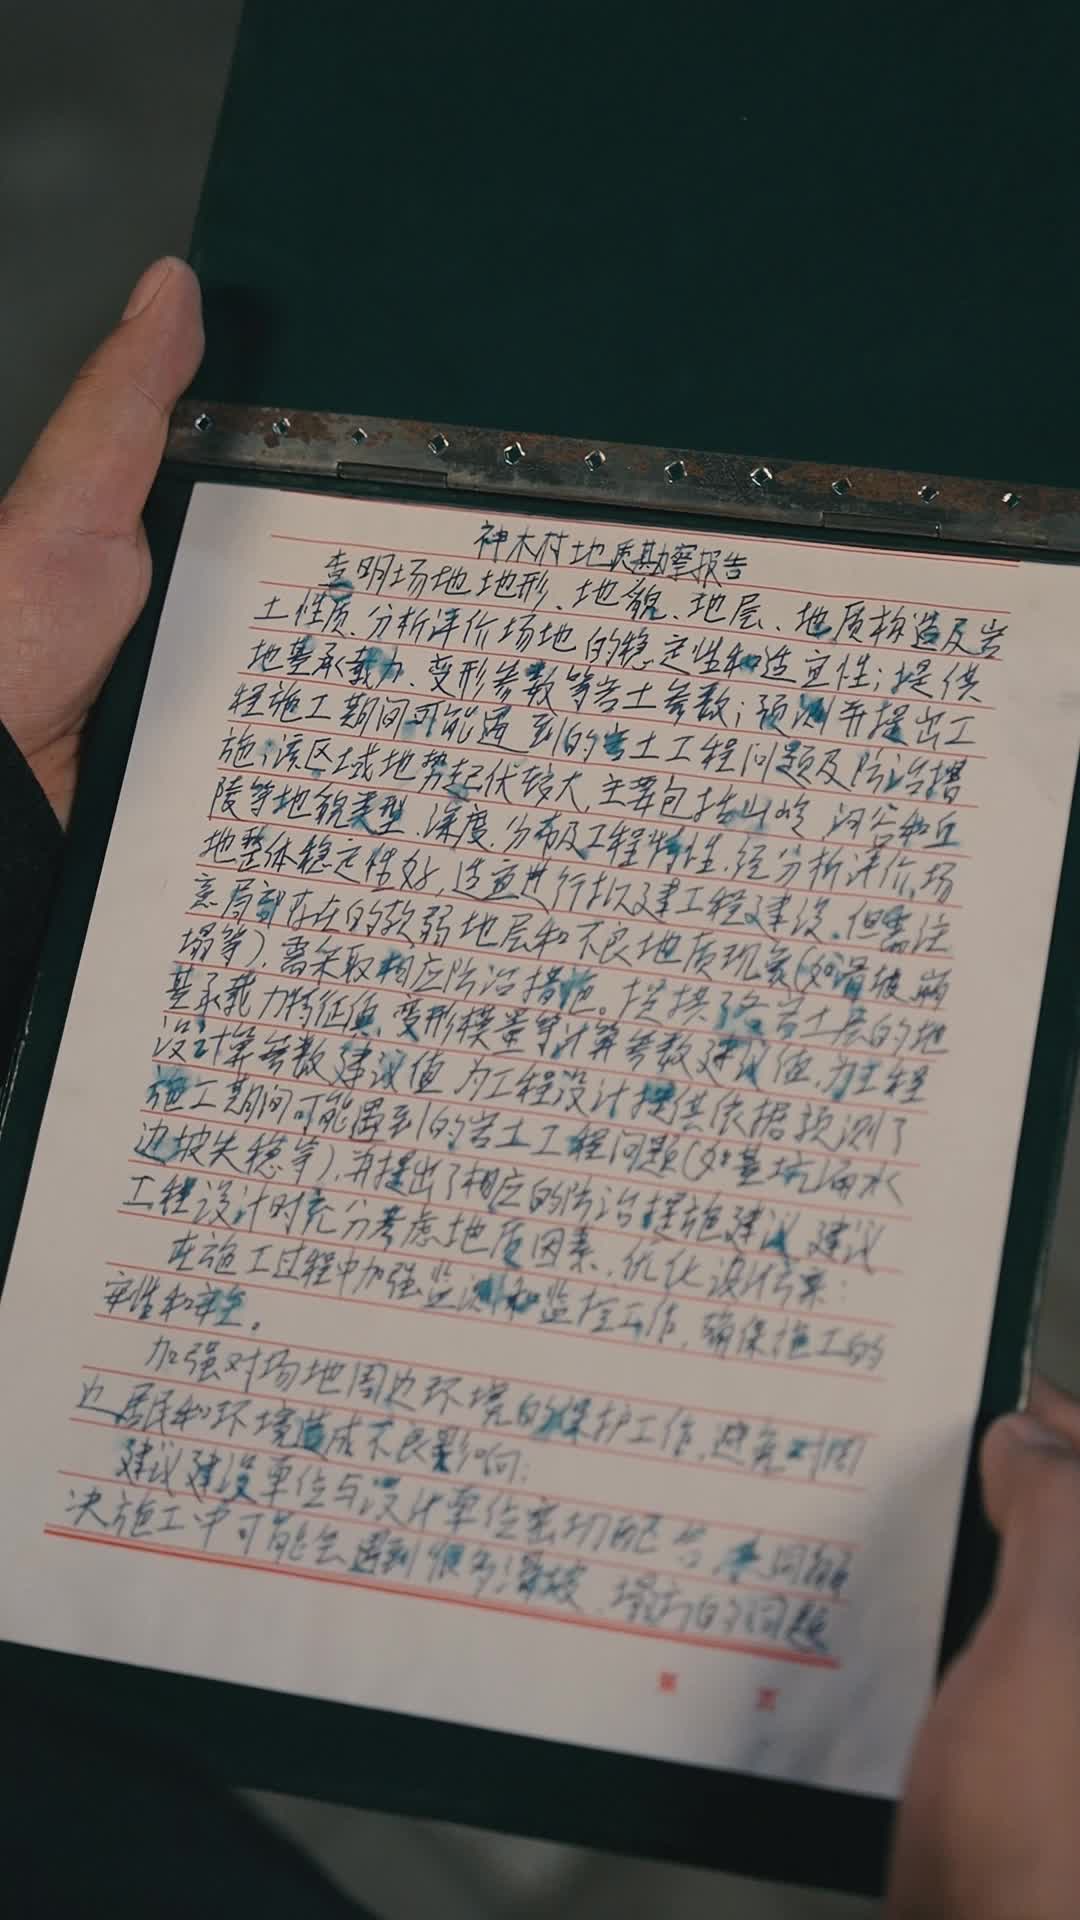 神木村地质勘察报告
查明场地地形、地貌、地层、地质构造及岩
土性质、分析评价场地的稳定性和适宜性；提供
地基承载力、变形参数等岩土参数；预测并提出工
程施工期间可能遇到的岩土工程问题及防治措
施；该区域地势起伏较大，主要包括山岭、河谷和丘
陵等地貌类型、深度、分布及工程特性，经分析评价，场
地整体稳定性好，适宜进行拟建工程建设。但需注
意局部存在的软弱地层和不良地质现象(如滑坡、崩
塌等)，需采取相应防治措施。提供了各岩土层的地
基承载力特征值、变形模量等计算参数建议值，为工程
设计算参数建议值为工程设计提供依据预测了
施工期间可能遇到的岩土工程问题(如基坑涌水
边坡失稳等)，并提出了相应的防治措施建议，建议
工程设计时充分考虑地质因素，优化设计方案：
在施工过程中加强监测和监控工作，确保施工的
安性和安全。
加强对场地周边环境的保护工作，避免对周
边居民和环境造成不良影响：
建议建设单位与设计单位密切配合，共同解
决施工中可能会遇到很多滑坡、塌方的问题
第 页